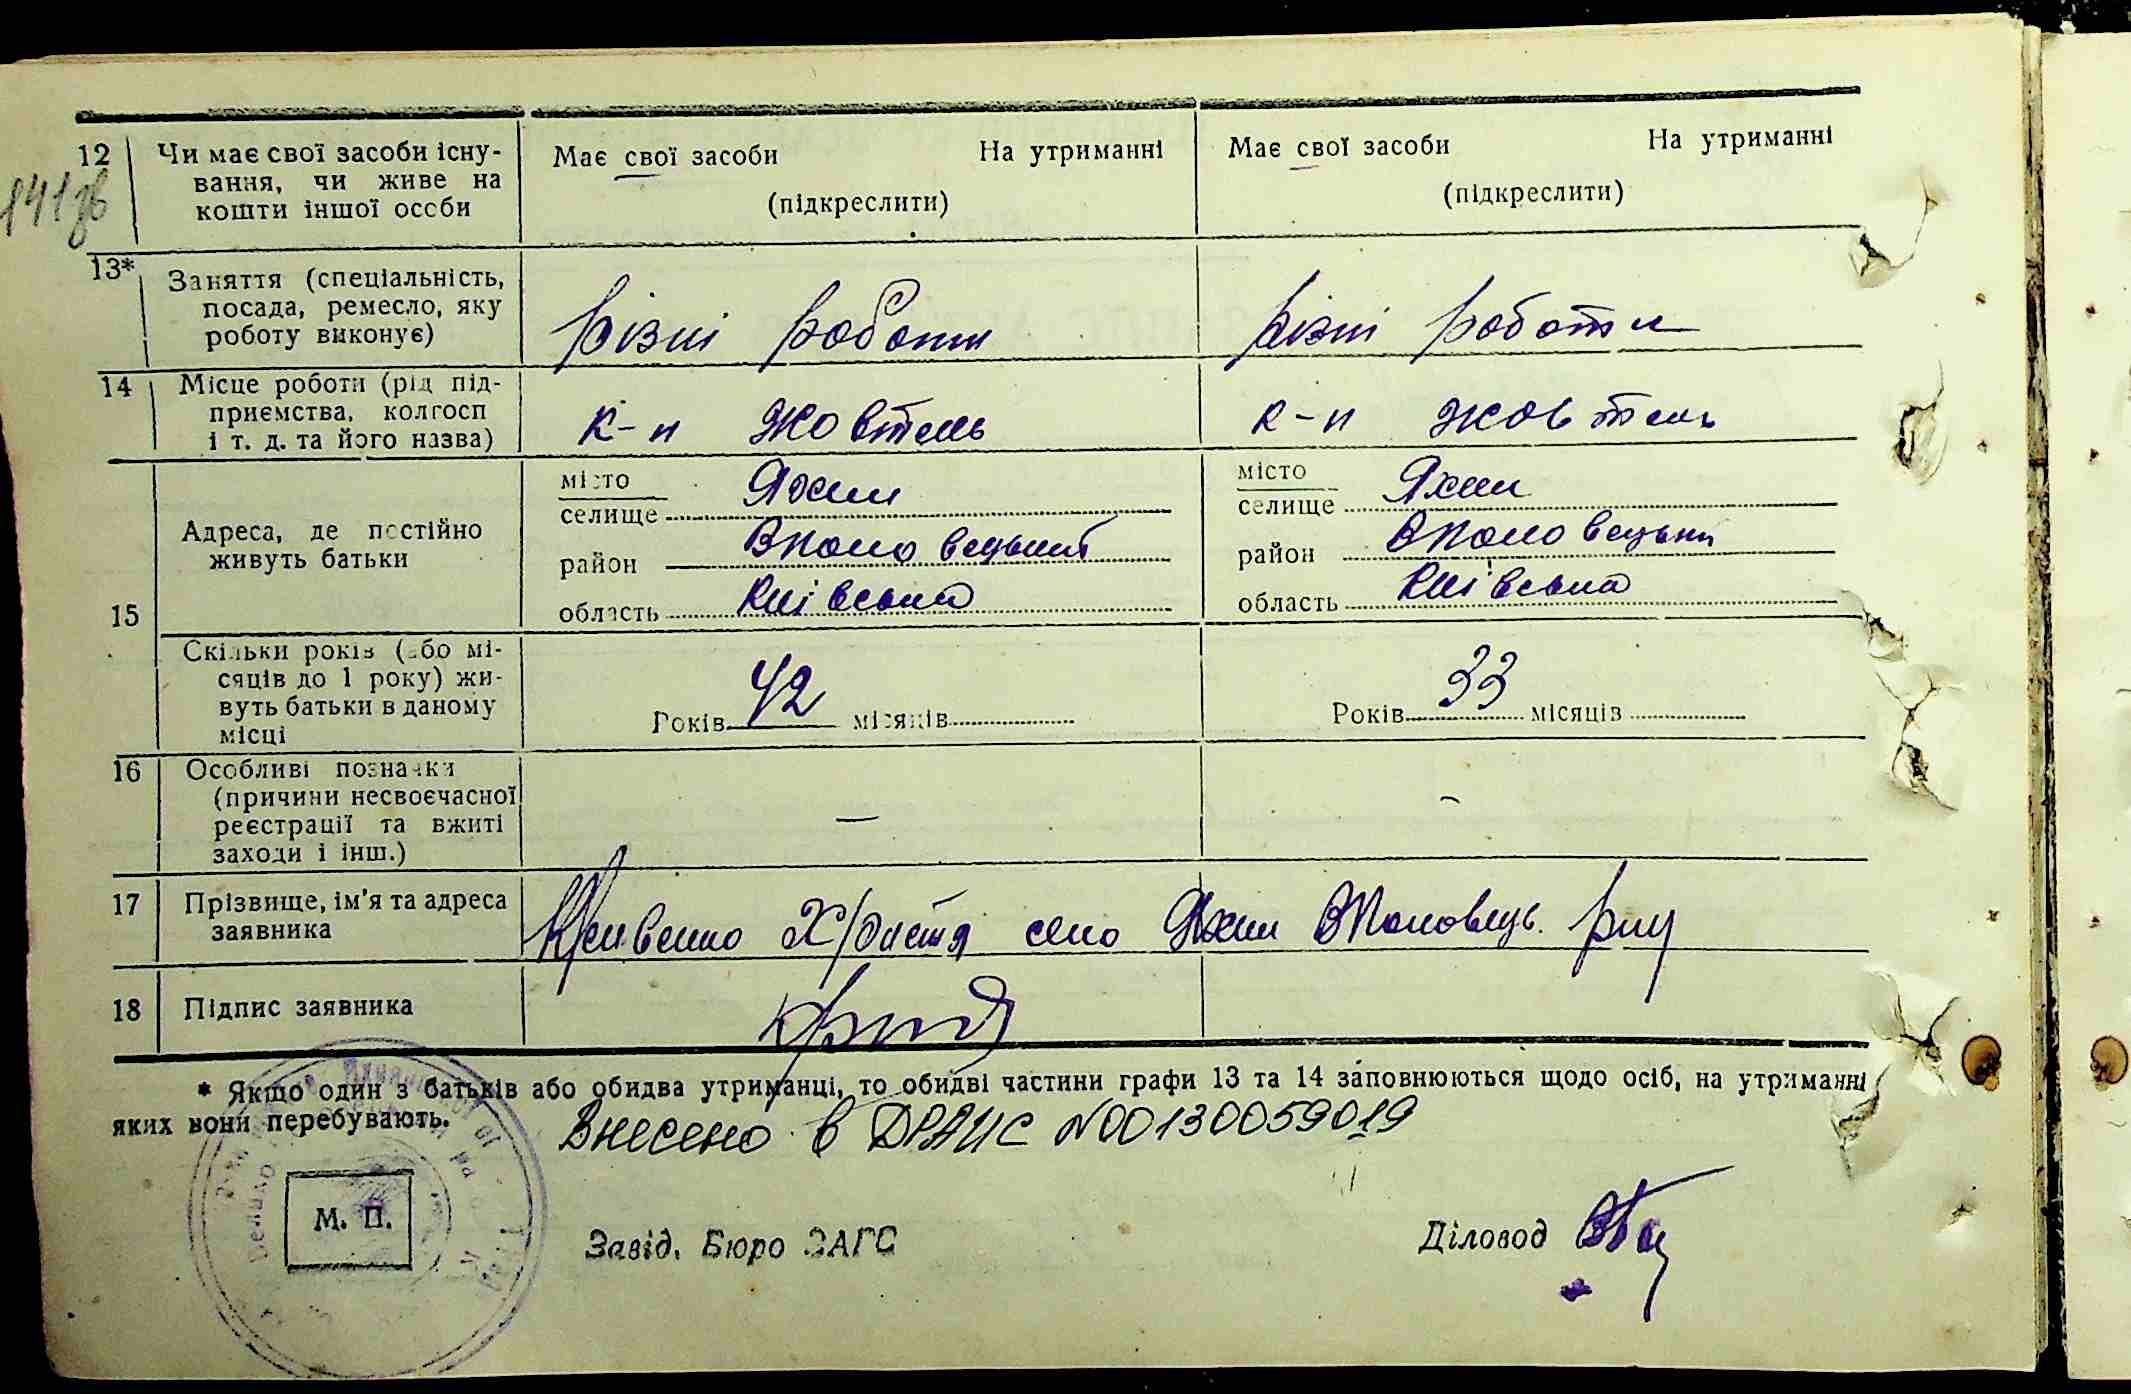 12 Чи має свої засоби існу- Має свої засоби На утриманні Має свої засоби На утриманні
вання, чи живе на
кошти іншої особи (підкреслити) (підкреслити)
141зв
13* Заняття (спеціальність,
посада, ремесло, яку
роботу виконує) різні роботи різні роботи
14 Місце роботи (рід під-
приємства, колгосп
і т. д. та його назва) к-п Жовтень к-п Жовтень
місто Яхни місто Яхни
селище селище
Адреса, де постійно
живуть батьки район Вполовецький район Вполовецький
15 область Київська область Київська
Скільки років (або мі-
сяців до 1 року) жи-
вуть батьки в даному Років 42 місяців Років 33 місяців
місці
16 Особливі позначки
(причини несвоєчасної
реєстрації та вжиті — –
заходи і інш.)
17 Прізвище, ім'я та адреса
заявника Кривенко Христя село Яхни Вполовець. р-ну
18 Підпис заявника
* Якщо один з батьків або обидва утриманці, то обидві частини графи 13 та 14 заповнюються щодо осіб, на утриманні
яких вони перебувають.
Внесено в ДРАЦС №00130059019
М. П.
Завід. Бюро ЗАГС Діловод